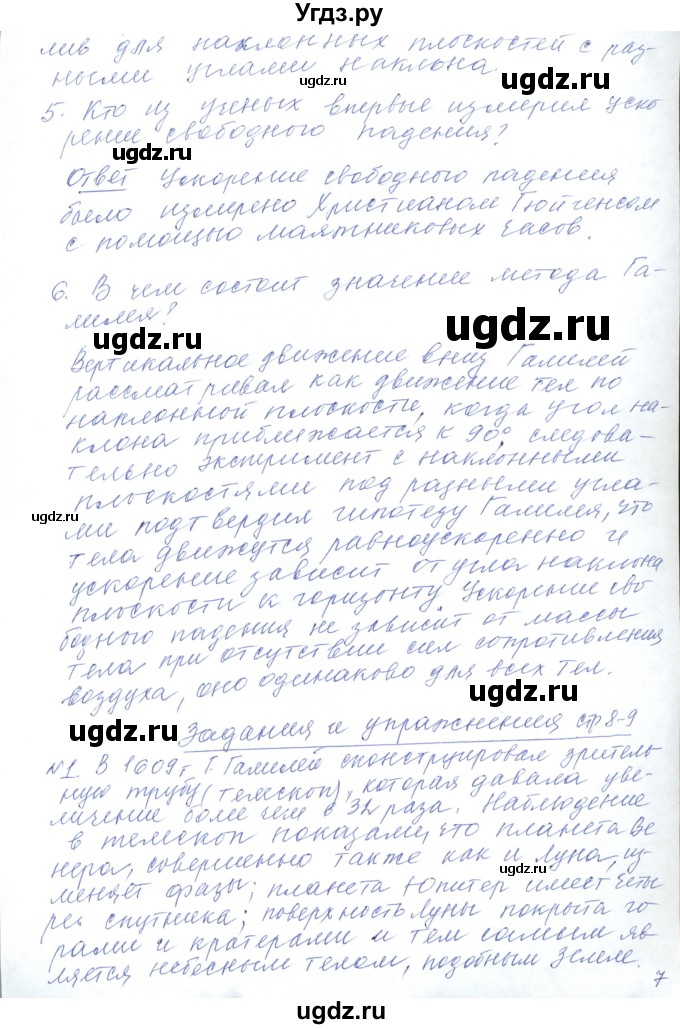 Угдз.ру
лив для наклонных плоскостей с раз-
ными углами наклона.
угдз.ru
5. Кто из ученых впервые измерил уско
рение свободного падения?
угдз.ru
Ответ Ускорение свободного падения
было измерено Христианом Гюйгенсом
с помощью маятниковых часов.
угдз.ru
6. В чем состоит значение метода Га-
лилея?
угдз.ru
угдз.ru
Вертикальное движение вниз Галилей
рассматривал как движение тел по
наклонной плоскости, когда угол на-
клона приближается к 90°, следова-
тельно эксперимент с наклонными
плоскостями под разными угла-
ми подтвердил гипотезу Галилея, что
угдз.ru
угдз.ru
тела движутся равноускоренно и
ускорение зависит от угла наклона
плоскости к горизонту Ускорение сво
бодного падения не зависит от массы
тела при отсутствии сил сопротивления
воздуха, оно одинаково для всех тел.
угдз.ru
угдз.ru
Задания и упражнения стр 8-9
№1 В 1609г Г. Галилей сконструировал зритель-
ную трубу (телескоп), которая давала уве-
личение более чем в 32 раза. Наблюдение
угдз.ru
в телескоп показали, что планета Ве
нера, совершенно также как и Луна, из-
меняет фазы; планета Юпитер имеет четы
угдз.ru
ре спутника; поверхность Луны покрыта го
рами и кратерами и тем самым яв-
ляется небесным телом, подобным Земле.
7
угдз.ru
угдз.ru